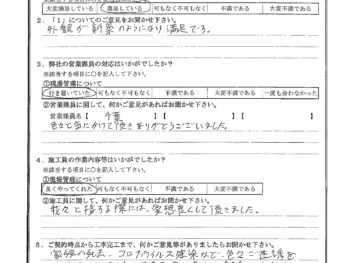 大変満足している 満足している 可もなく不可もなく 不満である 大変不満である
2．「1」についてのご意見をお聞かせ下さい。
外観が新築のようになり満足です。
3．弊社の営業職員の対応はいかがでしたか？
※該当する項目に○を記入して下さい。
①現場管理について
行き届いていた 可もなく不可もなく 不満である 大変不満である 一度も会わなかった
②営業職員に関して、何かご意見があればお聞かせ下さい。
営業職員名【 千葉 】【 】【 】
色々と気にかけて頂きありがとうございました。
4．施工員の作業内容等はいかがでしたか？
※該当する項目に○を記入して下さい。
①現場管理について
良くやってくれた 可もなく不可もなく 不満である 大変不満である
②施工員に関して、何かご意見があればお聞かせ下さい。
我々と接する際には、愛想良くして頂きました。
5．ご契約時点から工事完工まで、何かご意見等がありましたらお聞かせ下さい。
家族の死去、コロナウイルス感染などで、色々ご迷惑を